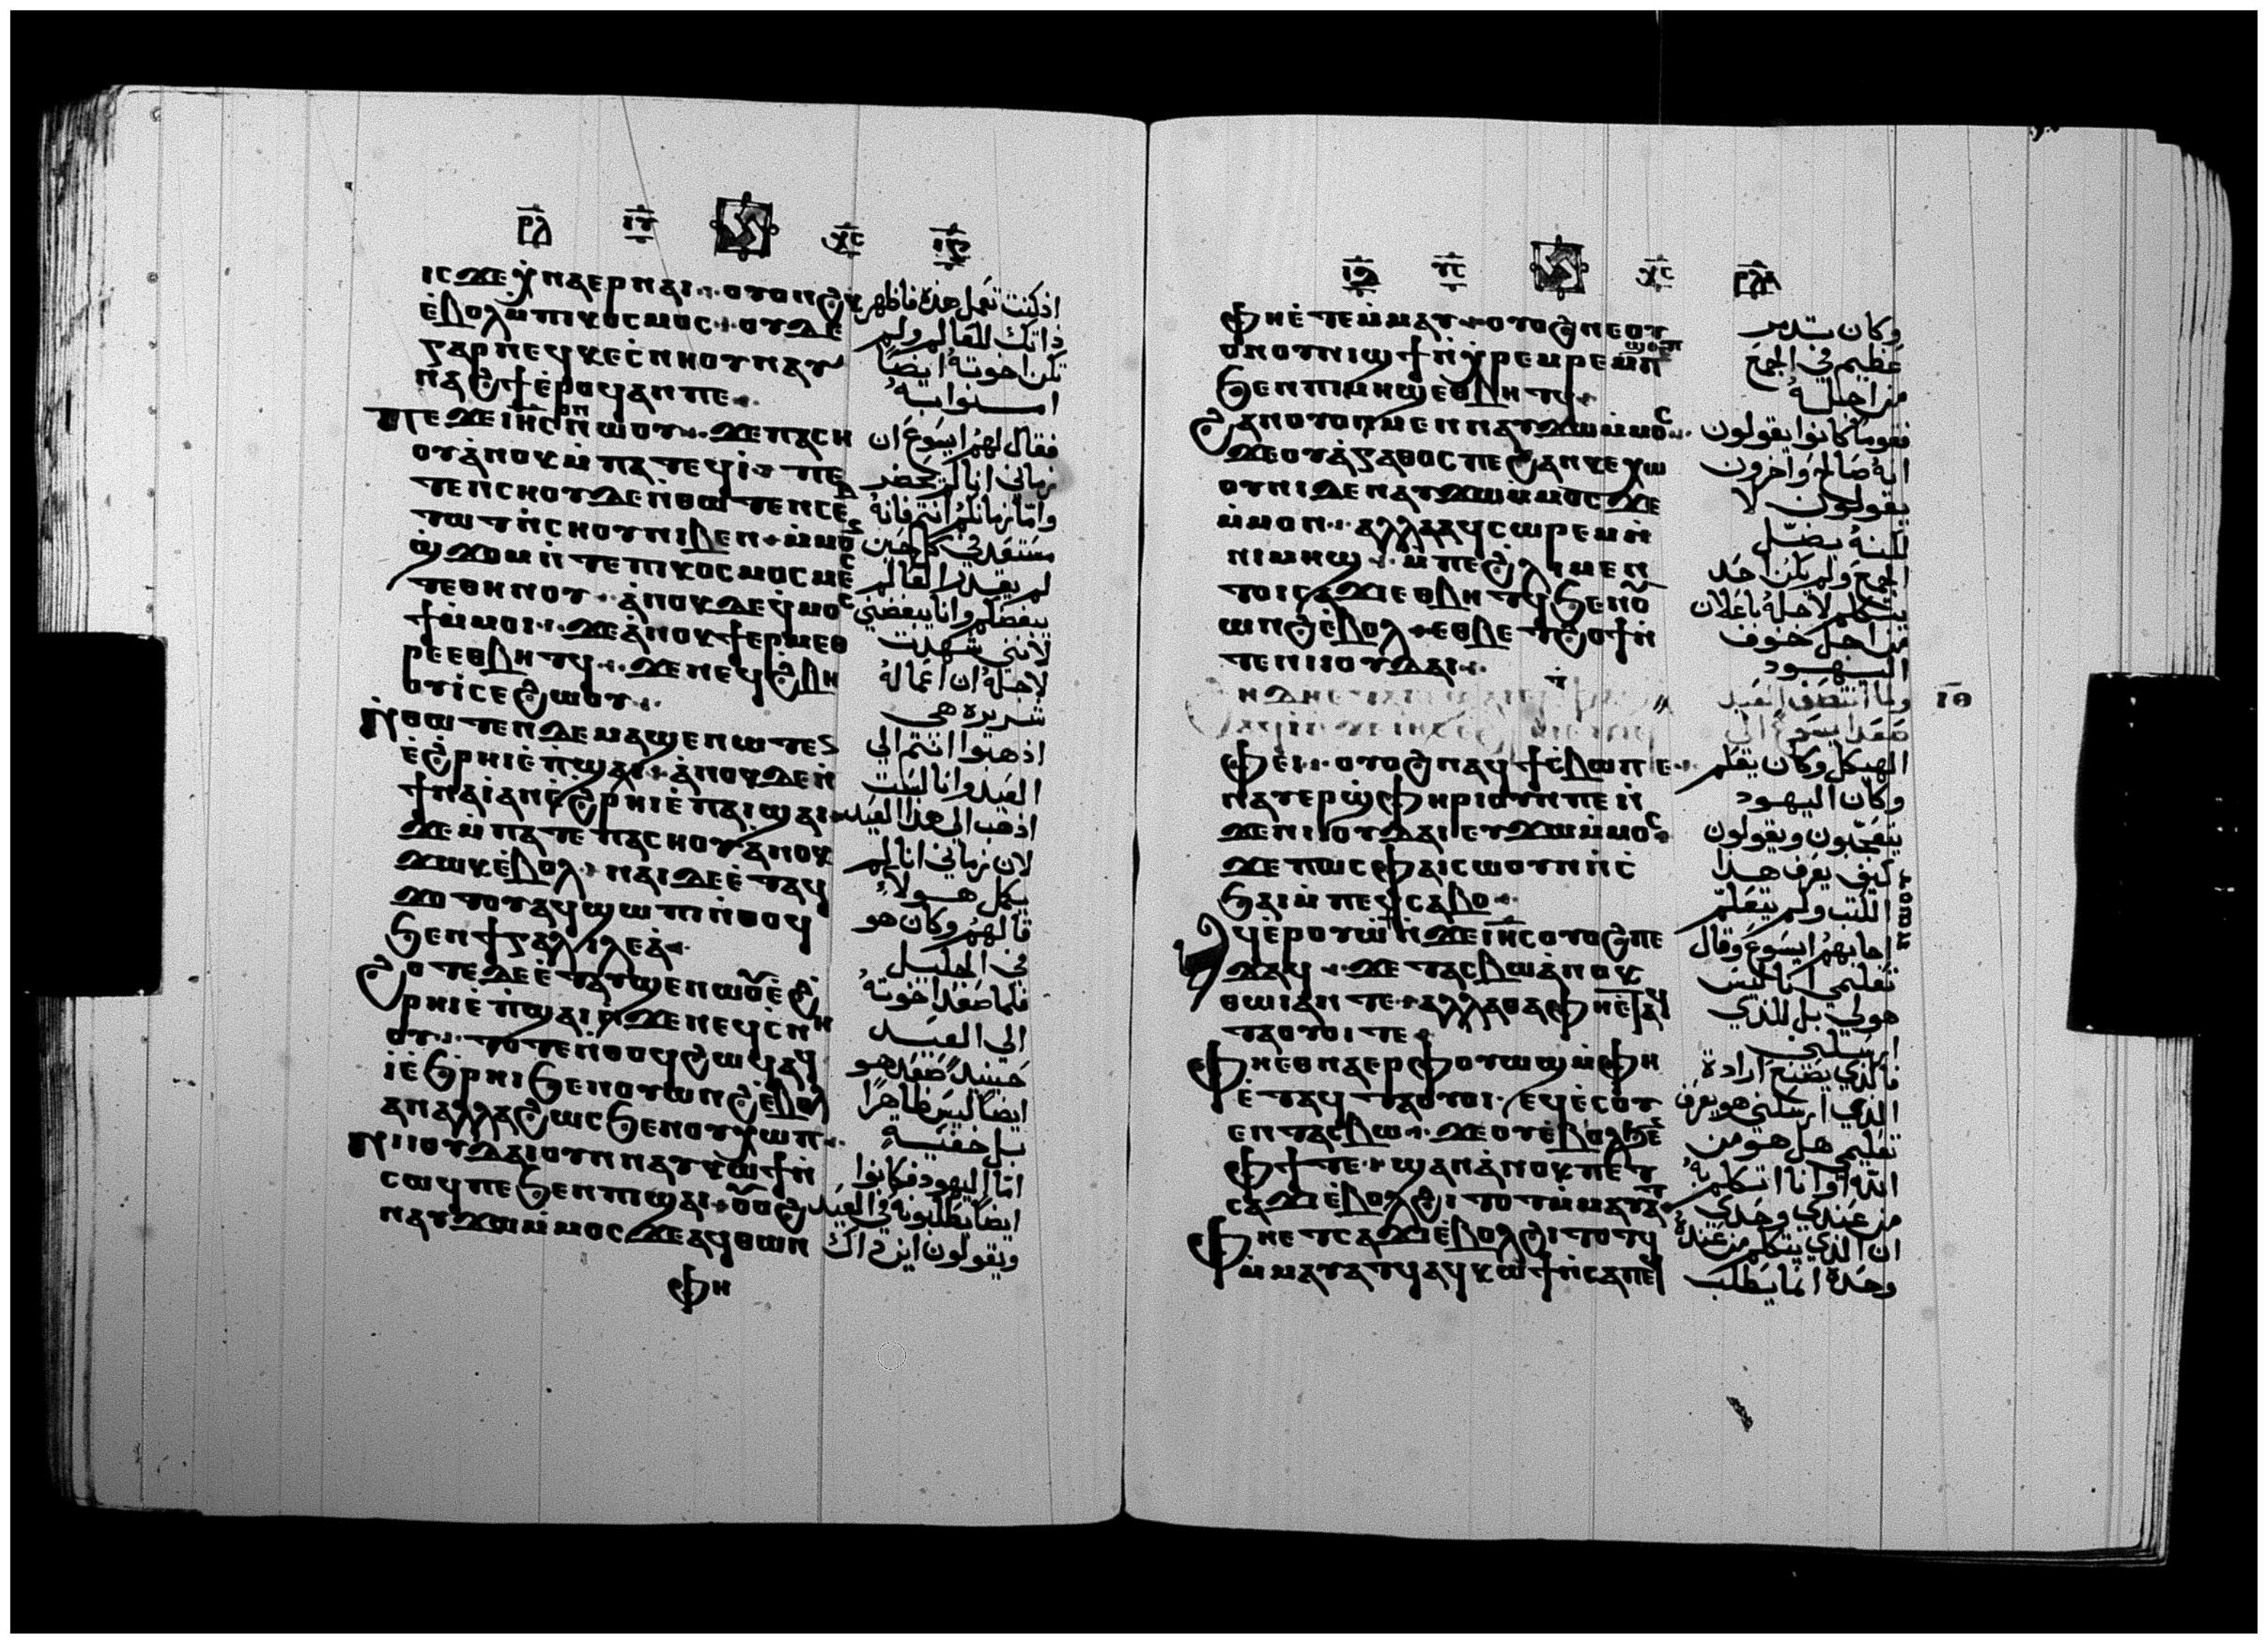 ⲣⲗ ⲓⲩ ⲭⲥ
ⲓⲥϫⲉⲭ̀ⲛⲁⲉⲣⲛⲁⲓ ⲟⲩⲟⲛϩⲕ
ⲉ̀ⲃⲟⲗⲙ̀ⲡⲓⲕⲟⲥⲙⲟⲥ ⲟⲩⲇⲉ
ⲅⲁⲣⲛⲉϥⲕⲉⲥ̀ⲛⲏⲟⲩⲛⲁⲩ
ⲛⲁϩϯⲉ̀ⲣⲟϥⲁⲛⲡⲉ
ⲡⲉϫⲉⲓⲏⲥⲟⲩⲛⲛⲱⲟⲩ ϫⲉⲡⲁⲥⲏ
ⲟⲩⲁ̀ⲛⲟⲕⲙ̀ⲡⲁⲧⲉϥⲓ̀ ⲡⲉ
ⲧⲉⲛⲥⲏⲟⲩⲇⲉⲛ̀ⲑⲱⲧⲉⲛⲥⲉⲃ
ⲧⲱⲧⲛ̀ⲥⲏⲟⲩⲛⲓⲃⲉⲛ ⲙ̀ⲙⲟⲥ
ϣ̀ϫⲟⲙⲛ̀ⲧⲉⲡⲓⲕⲟⲥⲙⲟⲥⲙⲉⲥ
ⲧⲉⲑⲏⲛⲟⲩ ⲁ̀ⲛⲟⲕⲇⲉϥ̀ⲙⲟⲥ
ϯⲙ̀ⲙⲟⲓ ϫⲉⲁ̀ⲛⲟⲕϯⲉⲣⲙⲉⲑ
ⲣⲉⲉⲑⲃⲏⲧϥ ϫⲉⲛⲉϥϩ̀ⲃⲏ
ⲟⲩⲓ̀ⲥⲉϩⲱⲟⲩ
ⲛ̀ⲑⲱⲧⲉⲛⲇⲉⲙⲁϣⲉⲛⲱⲧⲉⲛ
ⲉ̀ϩ̀ⲣⲏⲓⲉ̀ⲡ̀ϣⲁⲓ ⲁ̀ⲛⲟⲕⲇⲉⲛ̀
ϯⲛⲁⲓ̀ⲁⲛⲉ̀ϩⲣⲏⲓⲉ̀ⲡⲁⲓϣⲁⲓ
ϫⲉⲙ̀ⲡⲁⲧⲉⲡⲁⲥⲏⲟⲩⲁ̀ⲛⲟⲕ
ϫⲱⲕⲉ̀ⲃⲟⲗ ⲛⲁⲓⲇⲉⲉ̀ⲧⲁϥ
ϫⲟⲧⲟⲩⲁϥϣⲱⲡⲓⲛ̀ⲑⲟϥ
ϧⲉⲛϯⲅⲁⲗⲓⲗⲉⲁ̀
ϩⲟⲧⲉⲇⲉⲉ̀ⲧⲁⲩϣⲉⲛⲱⲟⲩⲉ̀ϩ̀
ⲣⲏⲓⲉ̀ⲡ̀ϣⲁⲓⲛ̀ϫⲉⲛⲉϥⲥ̀ⲛⲏ
ⲟⲩ ⲧⲟⲧⲉⲛ̀ⲑⲟϥϩⲱϥⲁϥ
ⲓ̀ⲉ̀ϩ̀ⲣⲏⲓϧⲉⲛⲟⲩⲱⲛϩⲉ̀ⲃⲟⲗ
ⲁⲛⲁⲗⲗⲁϩⲱⲥϧⲉⲛⲟⲩⲭⲱⲡ
ⲛⲓⲓⲟⲩⲇⲁⲓⲟⲩⲛⲛⲁⲩⲕⲱϯⲛ̀
ⲥⲱϥⲡⲉϧⲉⲛⲡⲓϣⲁⲓ ⲟⲩⲟϩ
ⲛⲁⲩϫⲱⲙ̀ⲙⲟⲥϫⲉⲁϥⲑⲱⲛ
ⲫⲏ
اذ كنت تعمل هذه فاظهر
ذاتك للعالم ولم
تكن اخوته ايضا
امنوا به
فقال لهم ايسوع ان
زماني انا لم يحضر
واما زمانكم انتم فانه
مستعد في كل حين
لم يقدر العالم
يبغضكم وانا يبغضني
لانني شهدت
لاجله ان اعماله
شريره هي
اذهبوا انتم الي
العيد وانا لست
اذهب الى هذا العيد
لان زماني انا لم
يكمل هولاء
قالهم وكان هو
في الجليل
فلما صعد اخوته
الى العيد
حينيذ صعد هو
ايضا ليس ظاهرا
بل خفية
اما اليهود فكانوا
ايضا يطلبونه في العيد
ويقولون اين ذاك
ⲓⲩ ⲭⲥ
ⲫⲏⲉ̀ⲧⲉⲙ̀ⲙⲁⲩ ⲟⲩⲟϩⲛⲉⲟⲩ
ⲟⲛⲟⲩⲛⲓϣϯⲛ̀ⲭ̀ⲣⲉⲙⲣⲉⲙ ϣⲟⲡ
ϧⲉⲛⲡⲓⲙⲏϣⲉⲑⲃⲏⲧϥ
ϩⲁⲛⲟⲩⲟⲛⲙⲉⲛⲛⲁⲩϫⲱⲙ̀ⲙⲟⲥ
ϫⲉⲟⲩⲁ̀ⲅⲁⲑⲟⲥⲡⲉϩⲁⲛⲕⲉⲭⲱ
ⲟⲩⲛⲓⲇⲉⲛⲁⲩϫⲱⲙ̀ⲙⲟⲥϫⲉ
ⲙ̀ⲙⲟⲛ ⲁⲗⲗⲁⲁϥⲥⲱⲣⲉⲙⲛ̀
ⲡⲓⲙⲏϣ ⲙ̀ⲡⲉϩ̀ⲗⲓⲙⲉⲛ
ⲧⲟⲓⲥⲁϫⲓⲉⲑⲃⲏⲧϥϧⲉⲛⲟⲩ
ⲱⲛϩⲉ̀ⲃⲟⲗ ⲉⲑⲃⲉⲧϩⲟϯⲛ̀
ⲧⲉⲛⲓⲓⲟⲩⲇⲁⲓ
ⲫⲉⲓ ⲟⲩⲟϩⲛⲁϥϯⲥ̀ⲃⲱⲡⲉ
ⲛⲁⲩⲉⲣϣ̀ⲫⲏⲣⲓⲟⲩⲛⲡⲉⲛ̀
ϫⲉⲛⲓⲓⲟⲩⲇⲁⲓⲉⲩϫⲱⲙ̀ⲙⲟⲥ
ϫⲉⲡⲱⲥⲫⲁⲓⲥⲱⲟⲩⲛⲛ̀ⲥ̀
ϧⲁⲓⲙ̀ⲡⲉϥⲥⲁⲃⲟ
ⲁϥⲉ̀ⲣⲟⲩⲱ̀ⲛ̀ϫⲉⲓⲏⲥⲟⲩⲟϩⲡⲉ
ϫⲁϥ ϫⲉⲧⲁⲥⲃⲱⲁ̀ⲛⲟⲕ
ⲑⲱⲓⲁⲛⲧⲉ ⲁⲗⲗⲁⲑⲁⲫⲏⲉ̀ⲧⲁϥ
ⲧⲁⲟⲩⲟⲓⲧⲉ
ⲫⲏⲉⲑⲛⲁⲉⲣⲫⲟⲩⲱϣⲙ̀ⲫⲏ
ⲉ̀ⲧⲁϥⲧⲁⲟⲩⲟⲓ ⲉϥⲉ̀ⲥⲟⲩ
ⲉⲛⲧⲁⲥⲃⲱ ϫⲉⲟⲩⲉ̀ⲃⲟⲗϧⲉⲛ
ⲫϯⲧⲉ ϣⲁⲛⲁ̀ⲛⲟⲕⲡⲉⲧ
ⲥⲁϫⲓⲉ̀ⲃⲟⲗϩⲓⲧⲟⲧⲙ̀ⲙⲁⲩⲁⲧ
ⲫⲏⲉⲧⲥⲁϫⲓⲉ̀ⲃⲟⲗϩⲓⲧⲟⲧϥ
ⲙ̀ⲙⲁⲩⲁⲧϥⲁϥⲕⲱϯⲛ̀ⲥⲁⲡⲉ
وكان تدمر
عظيم في الجمع
من اجله
فقوما كانوا يقولون
انه صالح واخرون
يقولون لا
لكنه يضل
الجمع ولم يكن احد
يتكلم لاجله باعلان
من اجل خوف
اليهود
ولما انتصف العيد
صعد ايسوع الى
الهيكل وكان يعلم
وكان اليهود
يتعجبون ويقولون
كيف يعرف هذا
الكتب ولم يتعلم
اجابهم ايسوع وقال
تعليمي انا ليس
هو لي بل للذي
ارسلني
فالذي يصنع ارادة
الذي ارسلني هو يعرف
تعليمي هل هو من
الله او انا اتكلم به
من عندي وحدي
ان الذي يتكلم من عنده
وحده انما يطلب
ⲓⲑ